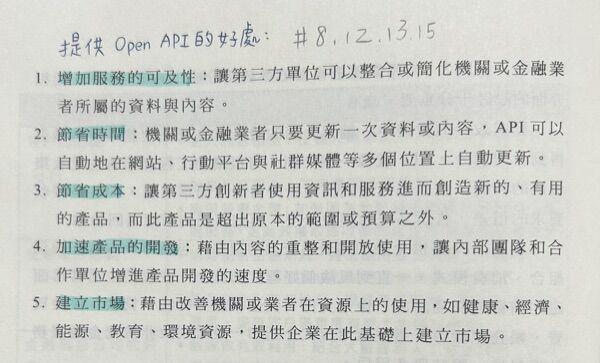 提供 Open API的好處: #8.12.13.15
1. 增加服務的可及性：讓第三方單位可以整合或簡化機關或金融業
者所屬的資料與內容。
2. 節省時間：機關或金融業者只要更新一次資料或內容，API 可以
自動地在網站、行動平台與社群媒體等多個位置上自動更新。
3. 節省成本：讓第三方創新者使用資訊和服務進而創造新的、有用
的產品，而此產品是超出原本的範圍或預算之外。
4. 加速產品的開發：藉由內容的重整和開放使用，讓內部團隊和合
作單位增進產品開發的速度。
5. 建立市場：藉由改善機關或業者在資源上的使用，如健康、經濟、
能源、教育、環境資源，提供企業在此基礎上建立市場。